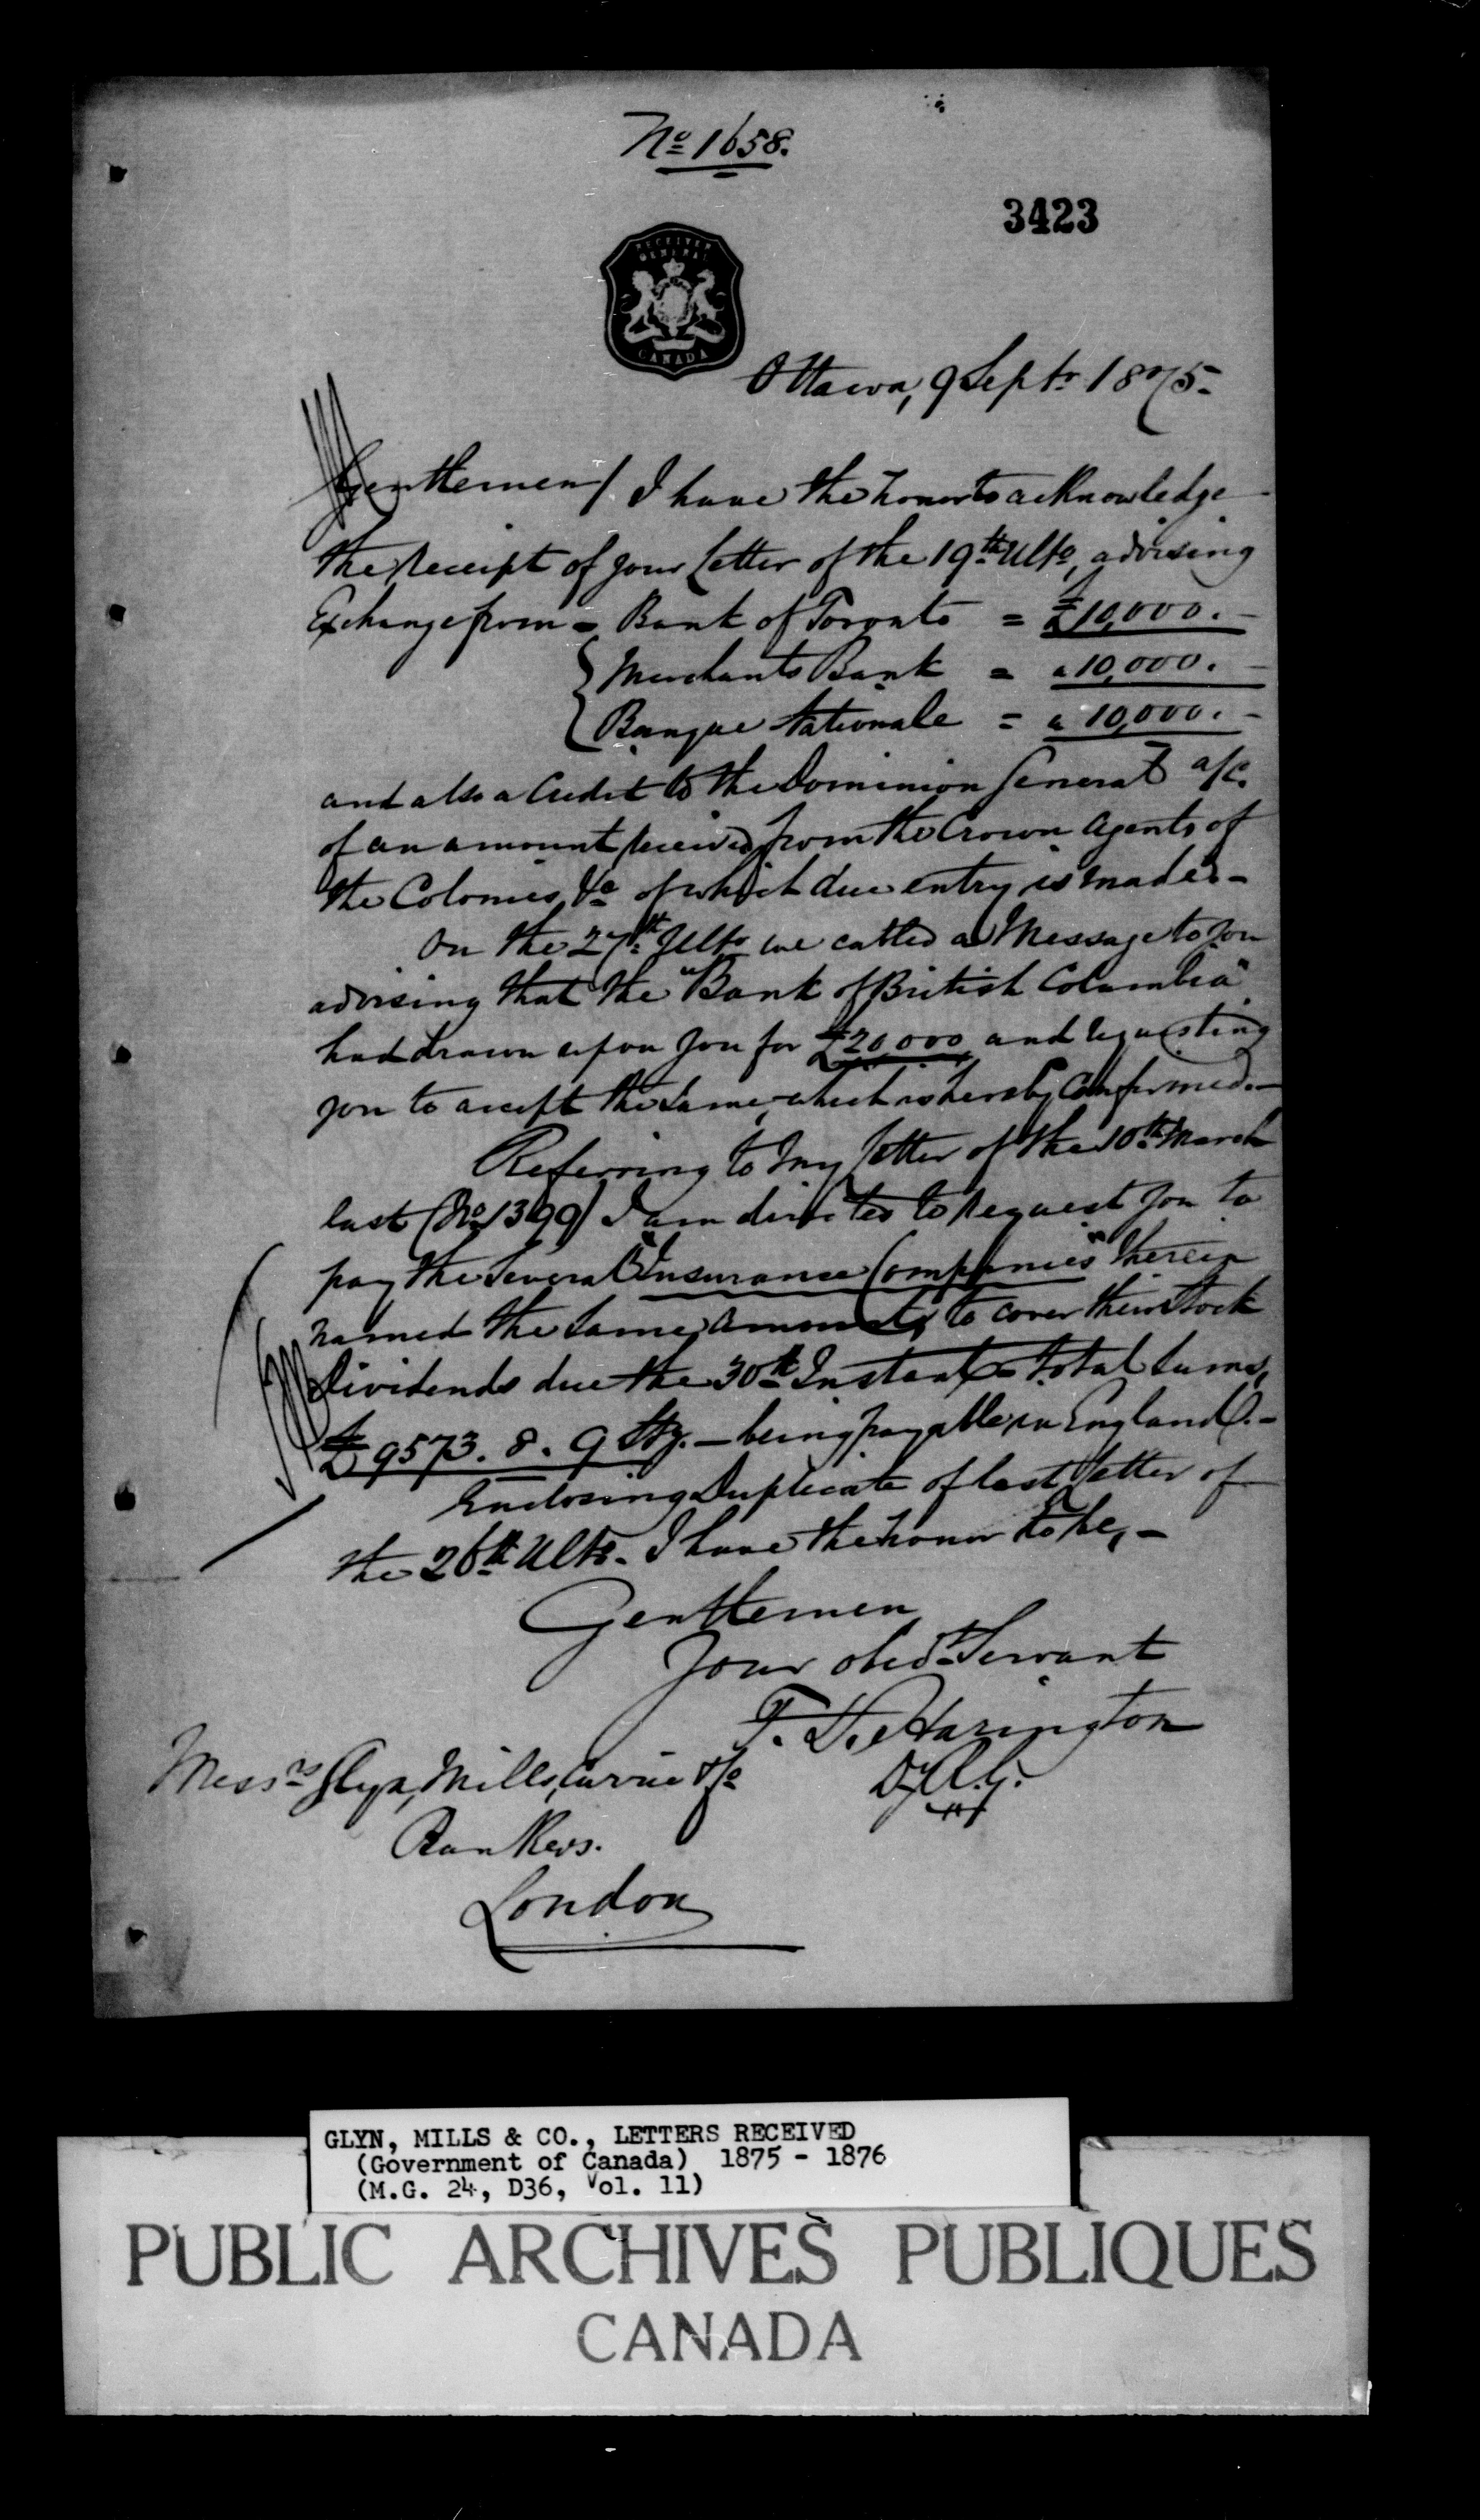 No 1658.
3423
RECEIVER
GENERAL
CANADA
Ottawa, 9 Septr 1875-
Gentlemen/ I have the honor to acknowledge
the receipt of your letter of the 19th Ulto, advising
Exchange from = Bank of Toronto = £10,000. -
Merchants Bank = " 10,000. -
Banque Nationale = " 10,000. -
and also a Credit to the Dominion General a/c.
of an amount received from the Crown Agents of
the Colonies, &c of which due entry is made. -
On the 27th Ulto we cabled a Message to you
advising that the "Bank of British Columbia"
had drawn upon you for £20,000, and requesting
you to accept the same, which is hereby Confirmed. -
Referring to my letter of the 10th March
last (No 1399) I am directed to request you to
pay the several "Insurance Companies" therein
named the same amounts, to cover their Stock
Dividends due the 30th Instant - total sums,
£9573. 8. 9 Stg. - being payable in England. -
Enclosing Duplicate of last letter of
the 26th Ulto. I have the honor to be, -
Gentlemen
Your obedt Servant
T. D. Harington
D.R.G.
Messrs Glyn, Mills, Currie & Co
Bankers.
London
GLYN, MILLS & CO., LETTERS RECEIVED
(Government of Canada) 1875 - 1876
(M.G. 24, D36, Vol. 11)
PUBLIC ARCHIVES PUBLIQUES
CANADA